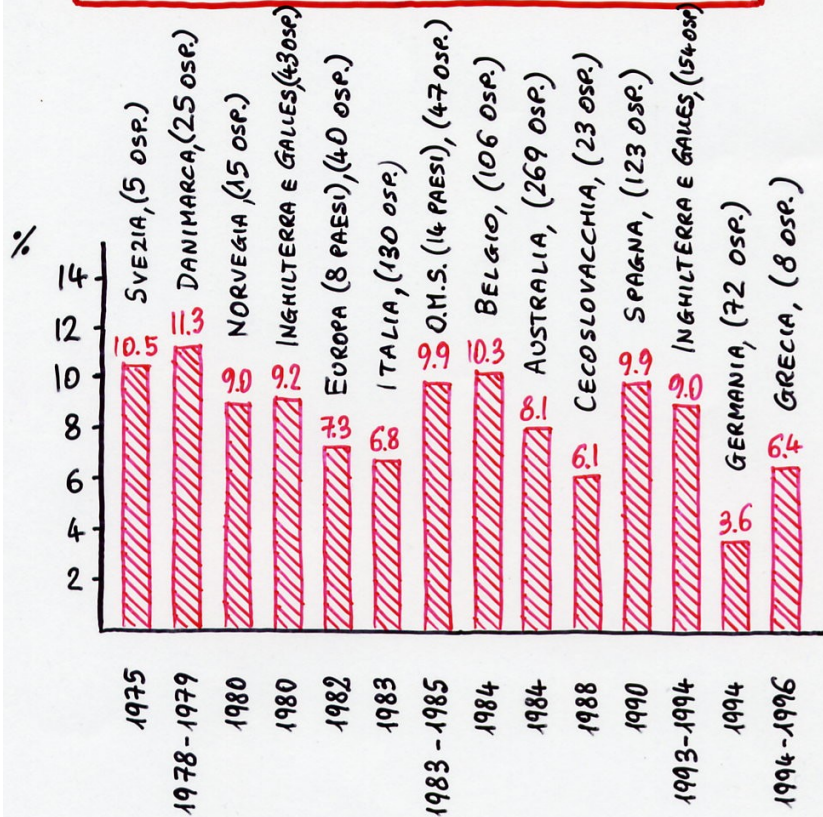 %
14
12
10
8
6
4
2
SVEZIA, (5 OSP.)
DANIMARCA, (25 OSP.)
NORVEGIA, (15 OSP.)
INGHILTERRA E GALLES, (43 OSP)
EUROPA (8 PAESI), (40 OSP.)
ITALIA, (130 OSP.)
O.M.S. (14 PAESI), (47 OSP.)
BELGIO, (106 OSP.)
AUSTRALIA, (269 OSP.)
CECOSLOVACCHIA, (23 OSP.)
SPAGNA, (123 OSP.)
INGHILTERRA E GALLES, (154 OSP)
GERMANIA, (72 OSP.)
GRECIA, (8 OSP.)
10.5
11.3
9.0
9.2
7.3
6.8
9.9
10.3
8.1
6.1
9.9
9.0
3.6
6.4
1975
1978-1979
1980
1980
1982
1983
1983-1985
1984
1984
1988
1990
1993-1994
1994
1994-1996